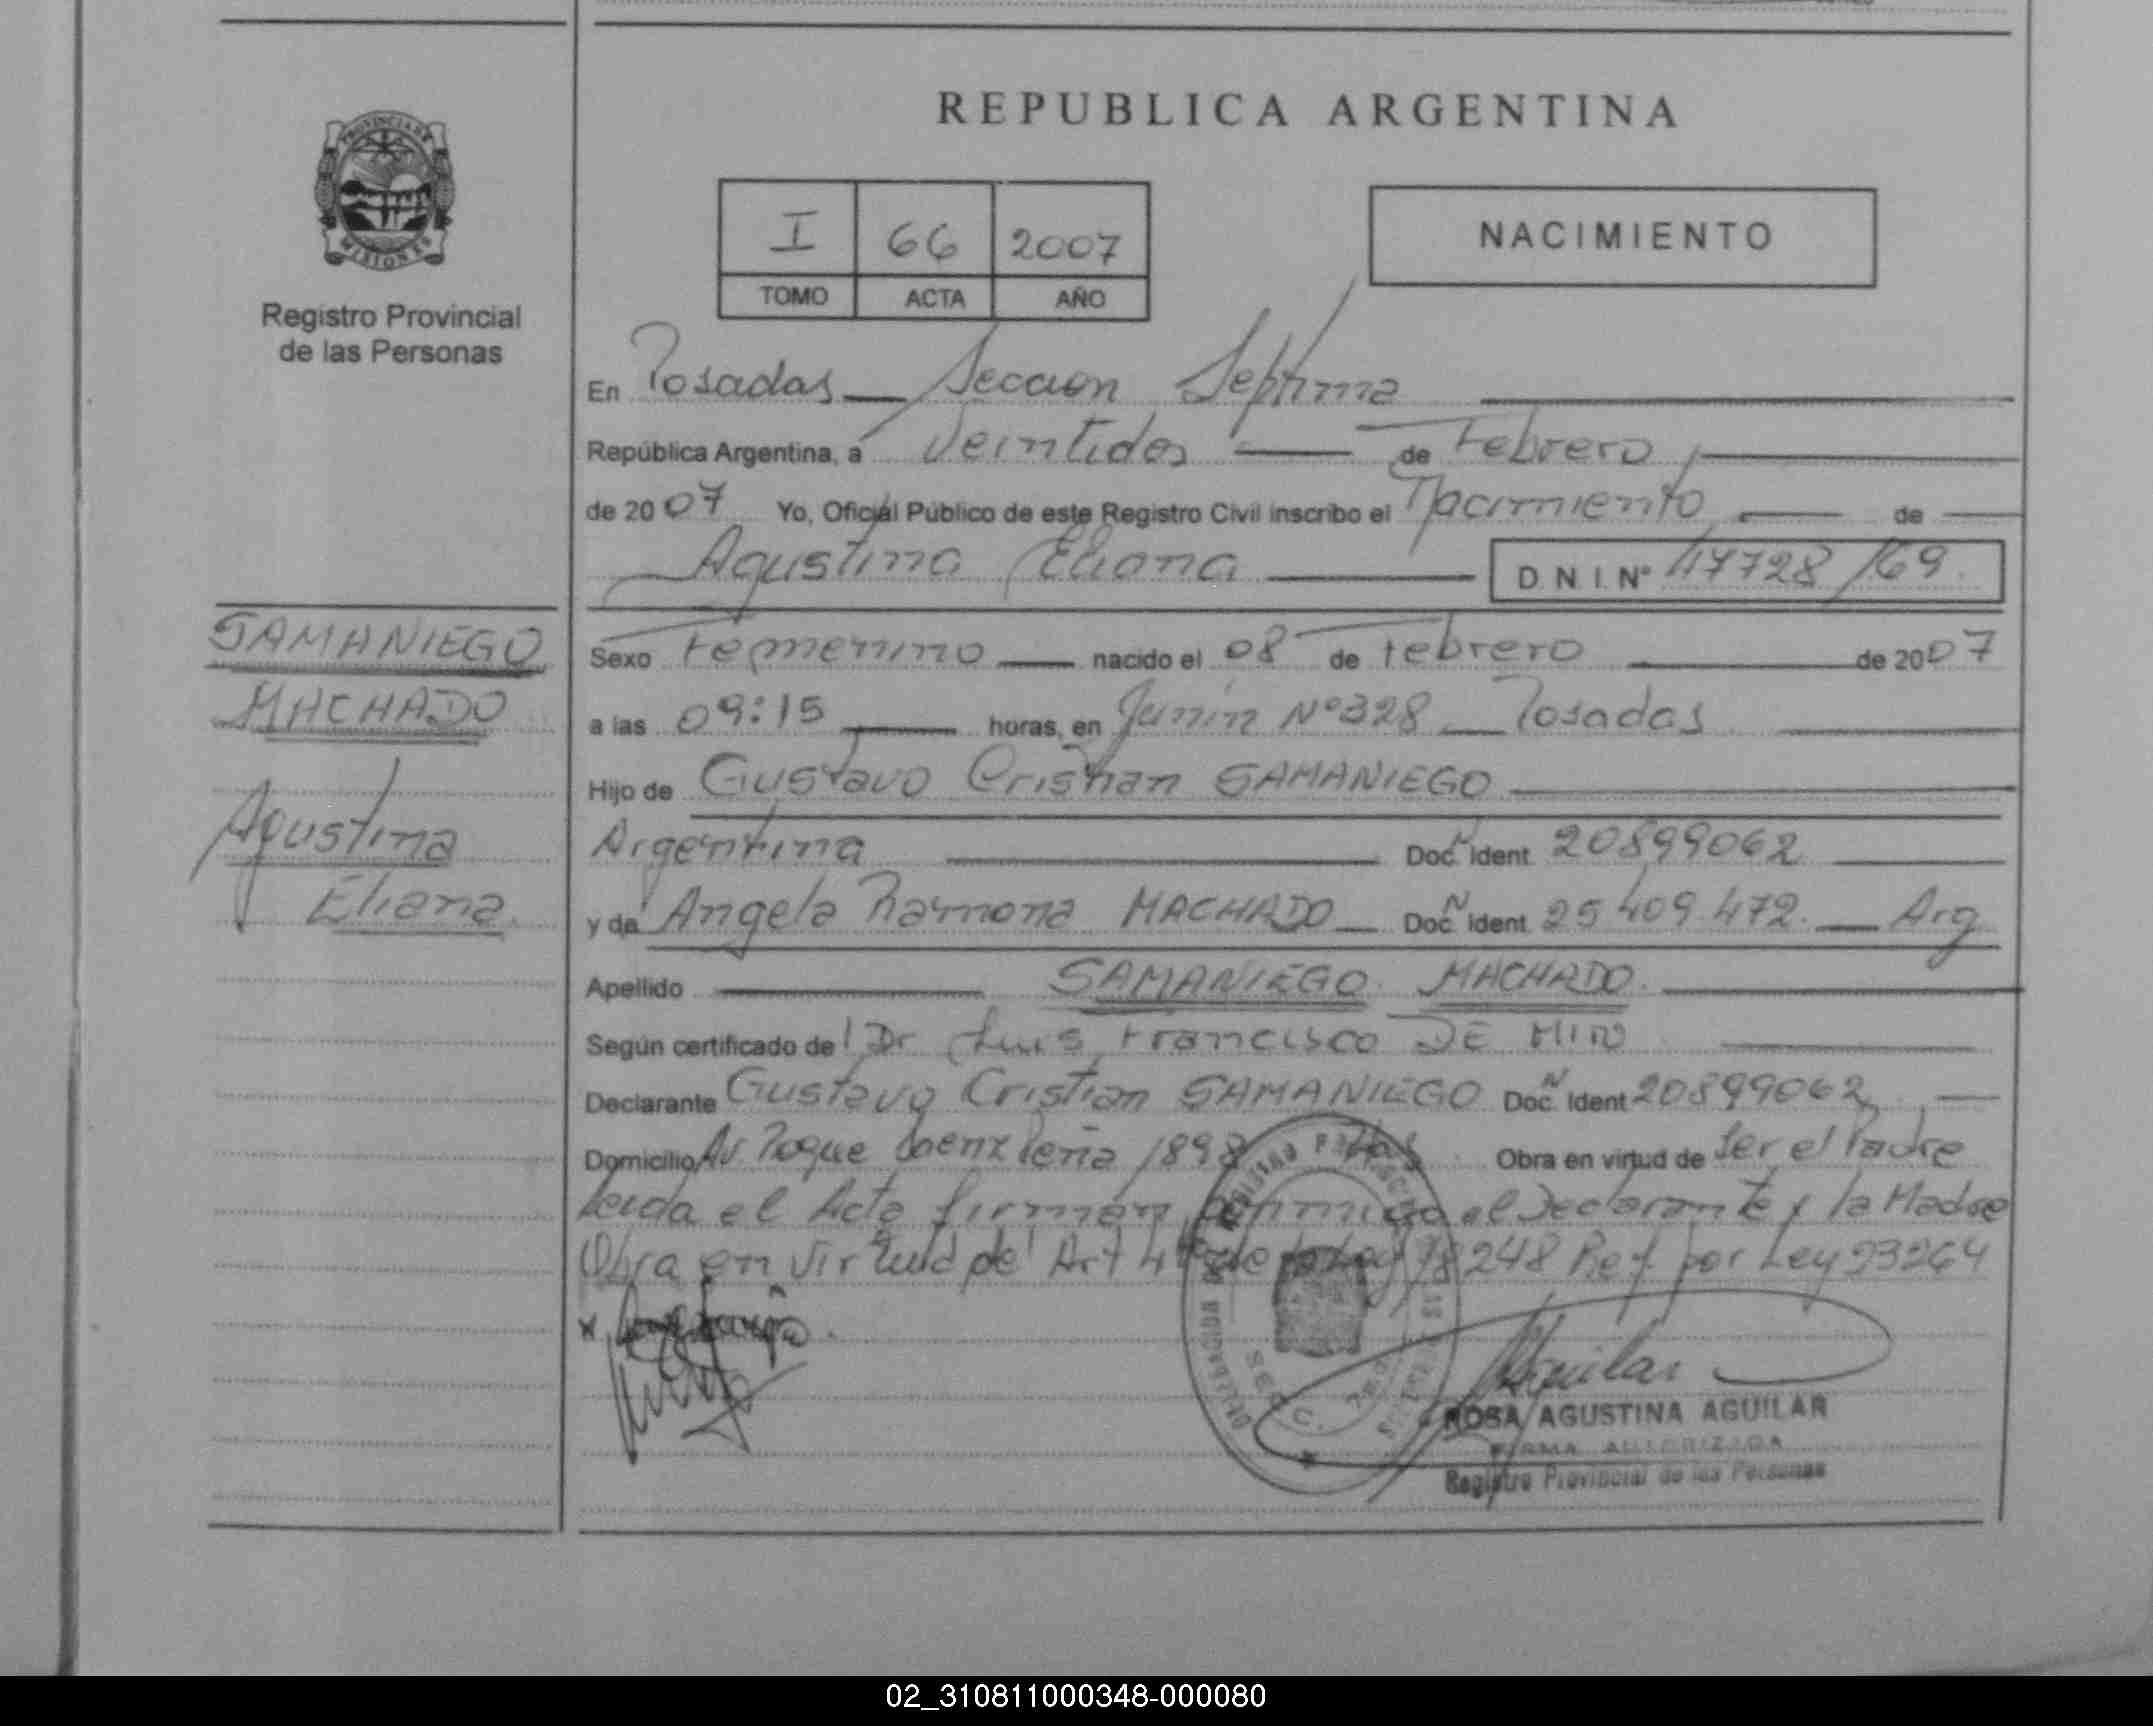 REPUBLICA ARGENTINA
PROVINCIA DE
MISIONES
Registro Provincial
de las Personas
I 66 2007
TOMO ACTA AÑO
NACIMIENTO
En Posadas Seccion Septima
República Argentina, a Veintidos de Febrero
de 2007 Yo, Oficial Público de este Registro Civil inscribo el Nacimiento de
Agustina Eliana D.N.I.Nº 47728169
SAMANIEGO
MACHADO
Agustina
Eliana
Sexo Femenino nacido el 08 de Febrero de 2007
a las 09:15 horas, en Junin Nº328 Posadas
Hijo de Gustavo Cristian SAMANIEGO
Argentina Doc. Ident 20899062
y de Angela Ramona MACHADO Doc. Ident 25409.472. Arg
Apellido SAMANIEGO MACHADO.
Según certificado de Dr Luis Francisco DE MIN
Declarante Gustavo Cristian SAMANIEGO Doc. Ident 20899062
Domicilio Av. Roque Saenz Peña 1898 Obra en virtud de Ser el Padre
Leida el Acta firman conmigo el Declarante y la Madre
Obra en Virtud del Art 4º de la Ley 18248 Ref. por Ley 23264
Aguilar
ROSA AGUSTINA AGUILAR
FIRMA AUTORIZADA
Registro Provincial de las Personas
02_310811000348-000080